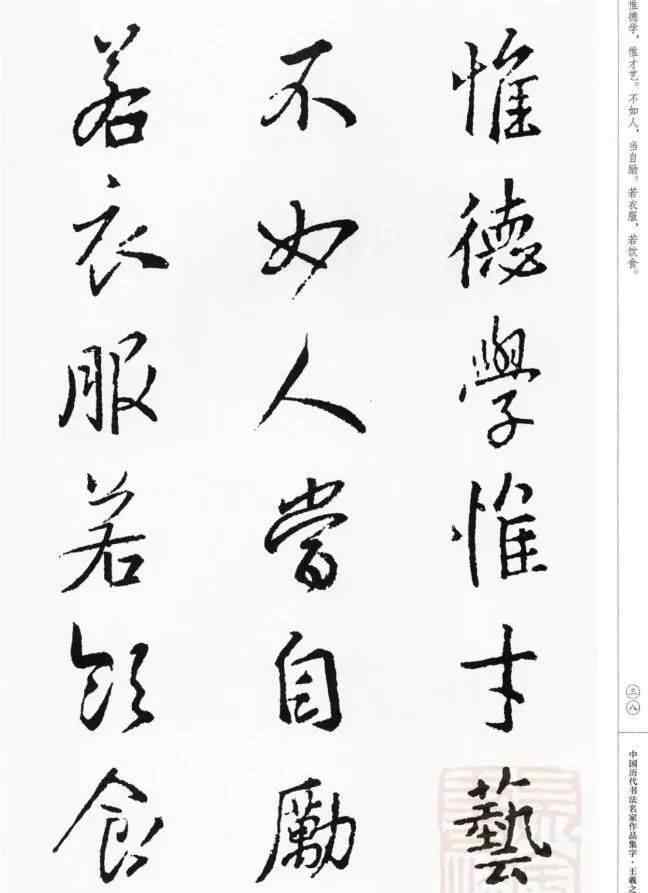 惟德学，惟才艺。不如人，当自励。若衣服，若饮食。
三八
中国历代书法名家作品集字·王羲之
惟德學惟才藝
不如人當自勵
若衣服若飲食